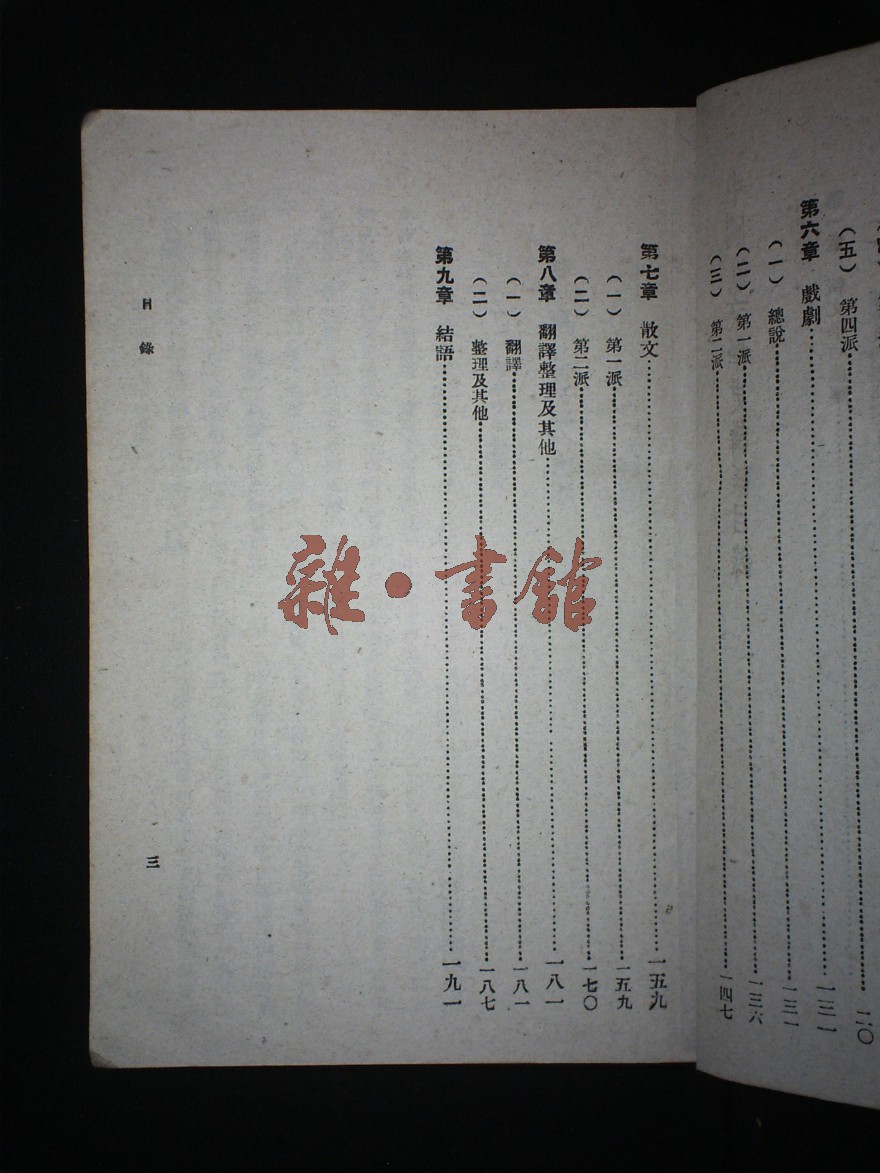 （五）　第四派……一二〇
第六章　戲劇……一三一
（一）　總說……一三一
（二）　第一派……一三六
（三）　第二派……一四七
第七章　散文……一五九
（一）　第一派……一五九
（二）　第二派……一七〇
第八章　翻譯整理及其他……一八一
（一）　翻譯……一八一
（二）　整理及其他……一八七
第九章　結語……一九一
目錄
三
雜·書館